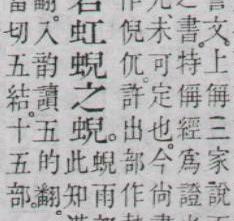 文。上偁三家說
之書。特偁經爲證
未可定也。今尚
作倪仉。許出部作
若虹蜺之蜺。
蜺雨
此知
翻。入韵讀五的翻。
當切五結。十五部。